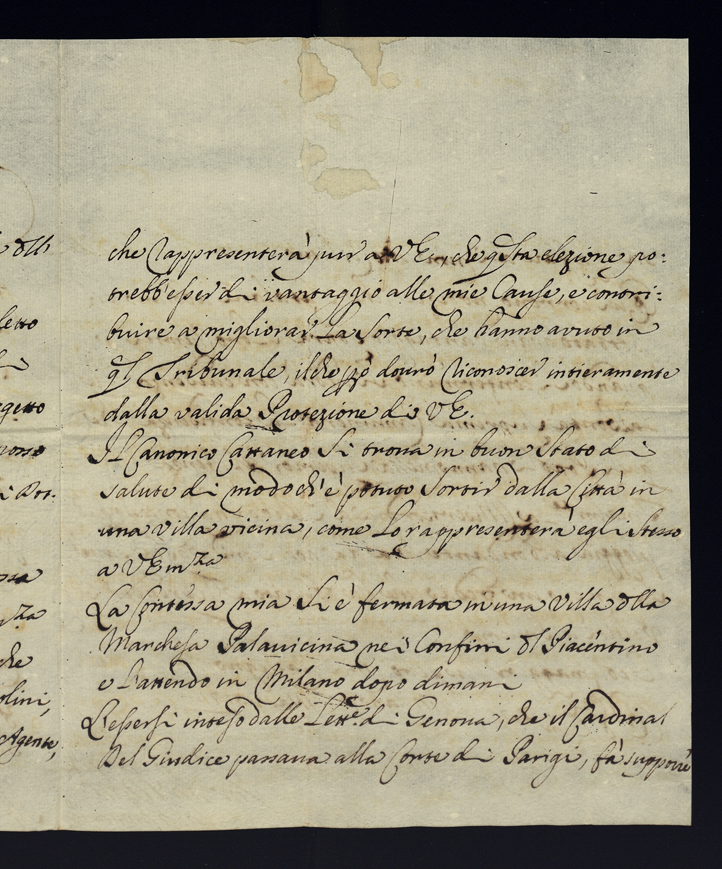 che rappresenterà pur a VE., che qsta elezione po:
trebb'esser di vantaggio alle mie Cause, e contri:
buire a migliorar La Sorte, che hanno avuto in
ql Tribunale, il che però dourò riconoscer intieramente
dalla valida Protezione di VE.
Il Canonico Cattaneo si troua in buon stato di
salute di modo ch'è potuto sortir dalla Città in
una villa vicina, come Lo rappresenterà egli stesso
a VEmza
La Contessa mia si è fermata in una Villa dlla
Marchesa Palauicina nei Confini dl Piacentino
e L'attendo in Milano dopo dimani
L'essersi inteso dalle Lettre di Genoua, che il Cardinal
Del Giudice passaua alla Corte di Parigi, fà supporre
dlli
letto
ggetto
olini,
Agente,